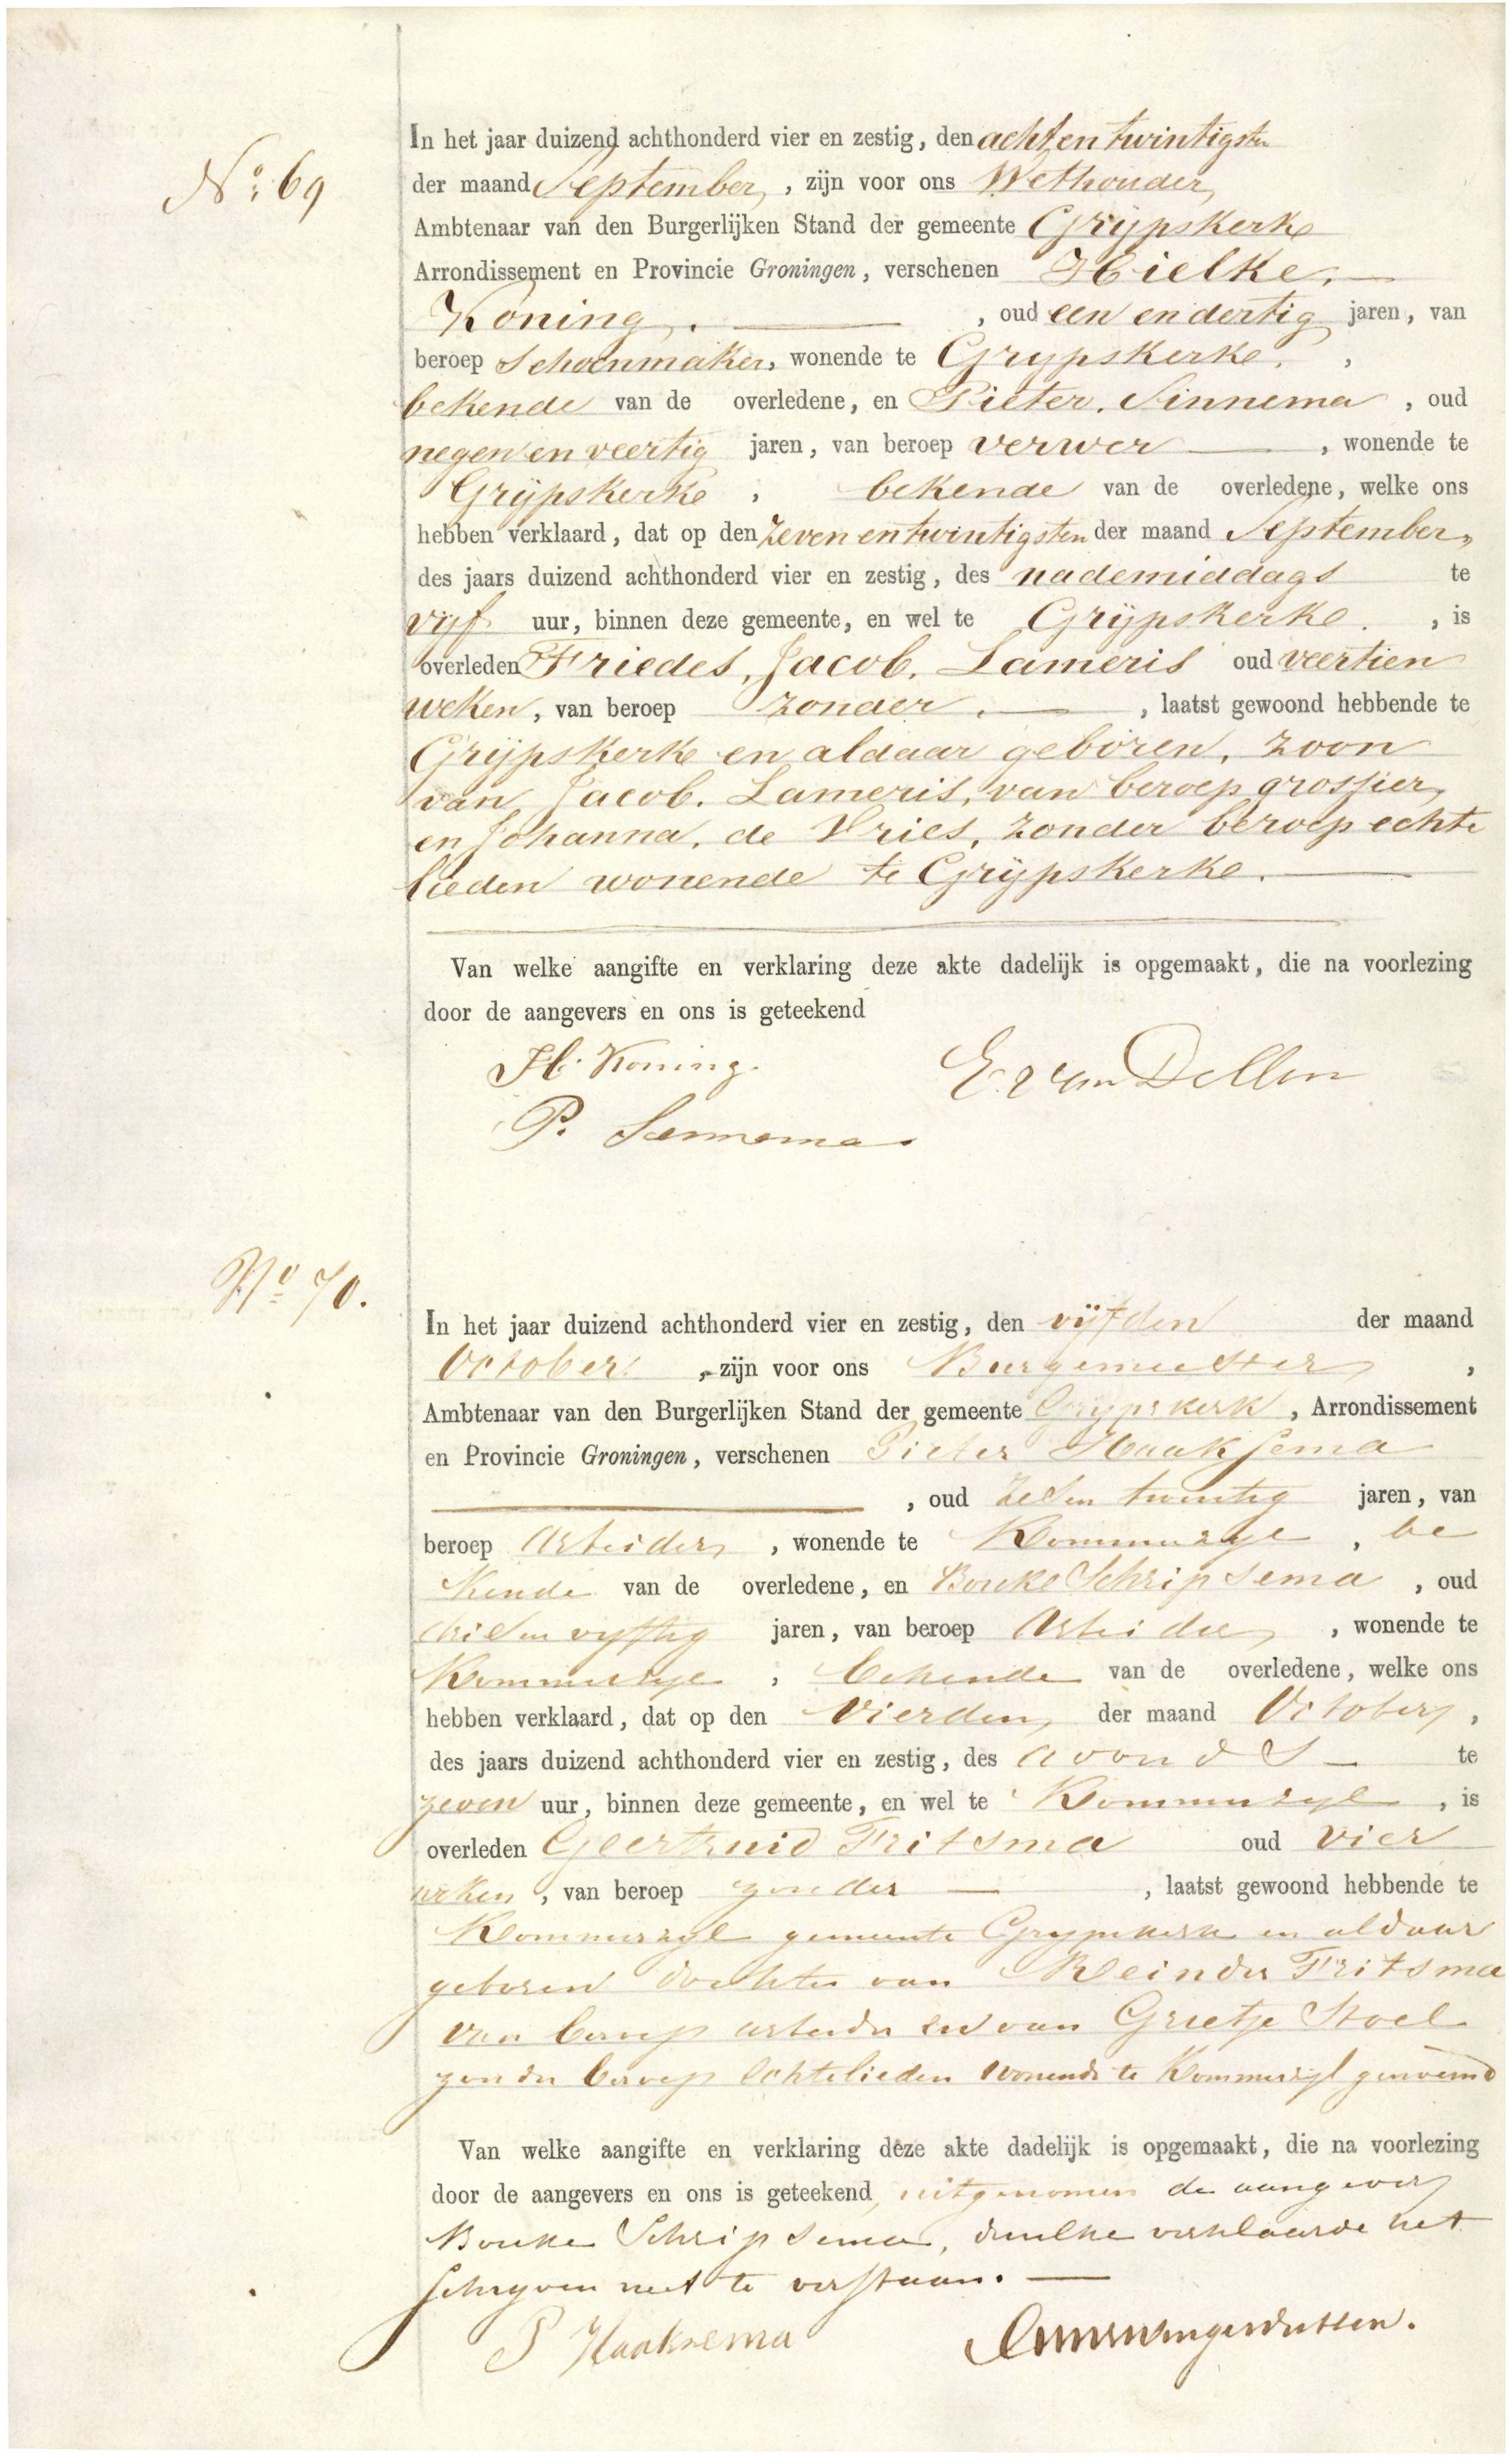 No. 69
In het jaar duizend achthonderd vier en zestig, den acht en twintigsten
der maand September, zijn voor ons Wethouder,
Ambtenaar van den Burgerlijken Stand der gemeente Grijpskerke
Arrondissement en Provincie Groningen, verschenen Hielke.
Koning. , oud een en dertig jaren, van
beroep Schoenmaker, wonende te Grijpskerke. ,
bekende van de overledene, en Pieter. Sinnema , oud
negen en veertig jaren, van beroep verwer , wonende te
Grijpskerke , bekende van de overledene, welke ons
hebben verklaard, dat op den Zeven en twintigsten der maand September,
des jaars duizend achthonderd vier en zestig, des nademiddags te
vijf uur, binnen deze gemeente, en wel te Grijpskerke. , is
overleden Friedes, Jacob. Lameris oud veertien
weken, van beroep zonder. , laatst gewoond hebbende te
Grijpskerke en aldaar geboren, zoon
van Jacob. Lameris, van beroep grossier,
en Johanna. de Vries, zonder beroep echte
lieden wonende te Grijpskerke.
Van welke aangifte en verklaring deze akte dadelijk is opgemaakt, die na voorlezing
door de aangevers en ons is geteekend
H. Koning.
E. van Dellen
P. Sennema
No 70.
In het jaar duizend achthonderd vier en zestig, den vijfden der maand
October , zijn voor ons Burgemeester ,
Ambtenaar van den Burgerlijken Stand der gemeente Grijpskerk , Arrondissement
en Provincie Groningen, verschenen Pieter Haaksema
, oud zes en twintig jaren, van
beroep Arbeider , wonende te Kommerzijl , be
kende van de overledene, en Bouke Schripsema , oud
drie en vijftig jaren, van beroep Arbeider , wonende te
Kommerzijl , bekende van de overledene, welke ons
hebben verklaard, dat op den Vierden der maand October ,
des jaars duizend achthonderd vier en zestig, des avonds te
zeven uur, binnen deze gemeente, en wel te Kommerzijl , is
overleden Geertruid Fritsma oud vier
weken , van beroep zonder , laatst gewoond hebbende te
Kommerzijl gemeente Grijpskerk en aldaar
geboren dochter van Reinder Fritsma
van beroep arbeider en van Grietje Stoel
zonder beroep Echtelieden wonende te Kommerzijl genoemd
Van welke aangifte en verklaring deze akte dadelijk is opgemaakt, die na voorlezing
door de aangevers en ons is geteekend, uitgenomen de aangever
Bouke Schripsema, dewelke verklaarde het
schrijven niet te verstaan.
P Haaksema